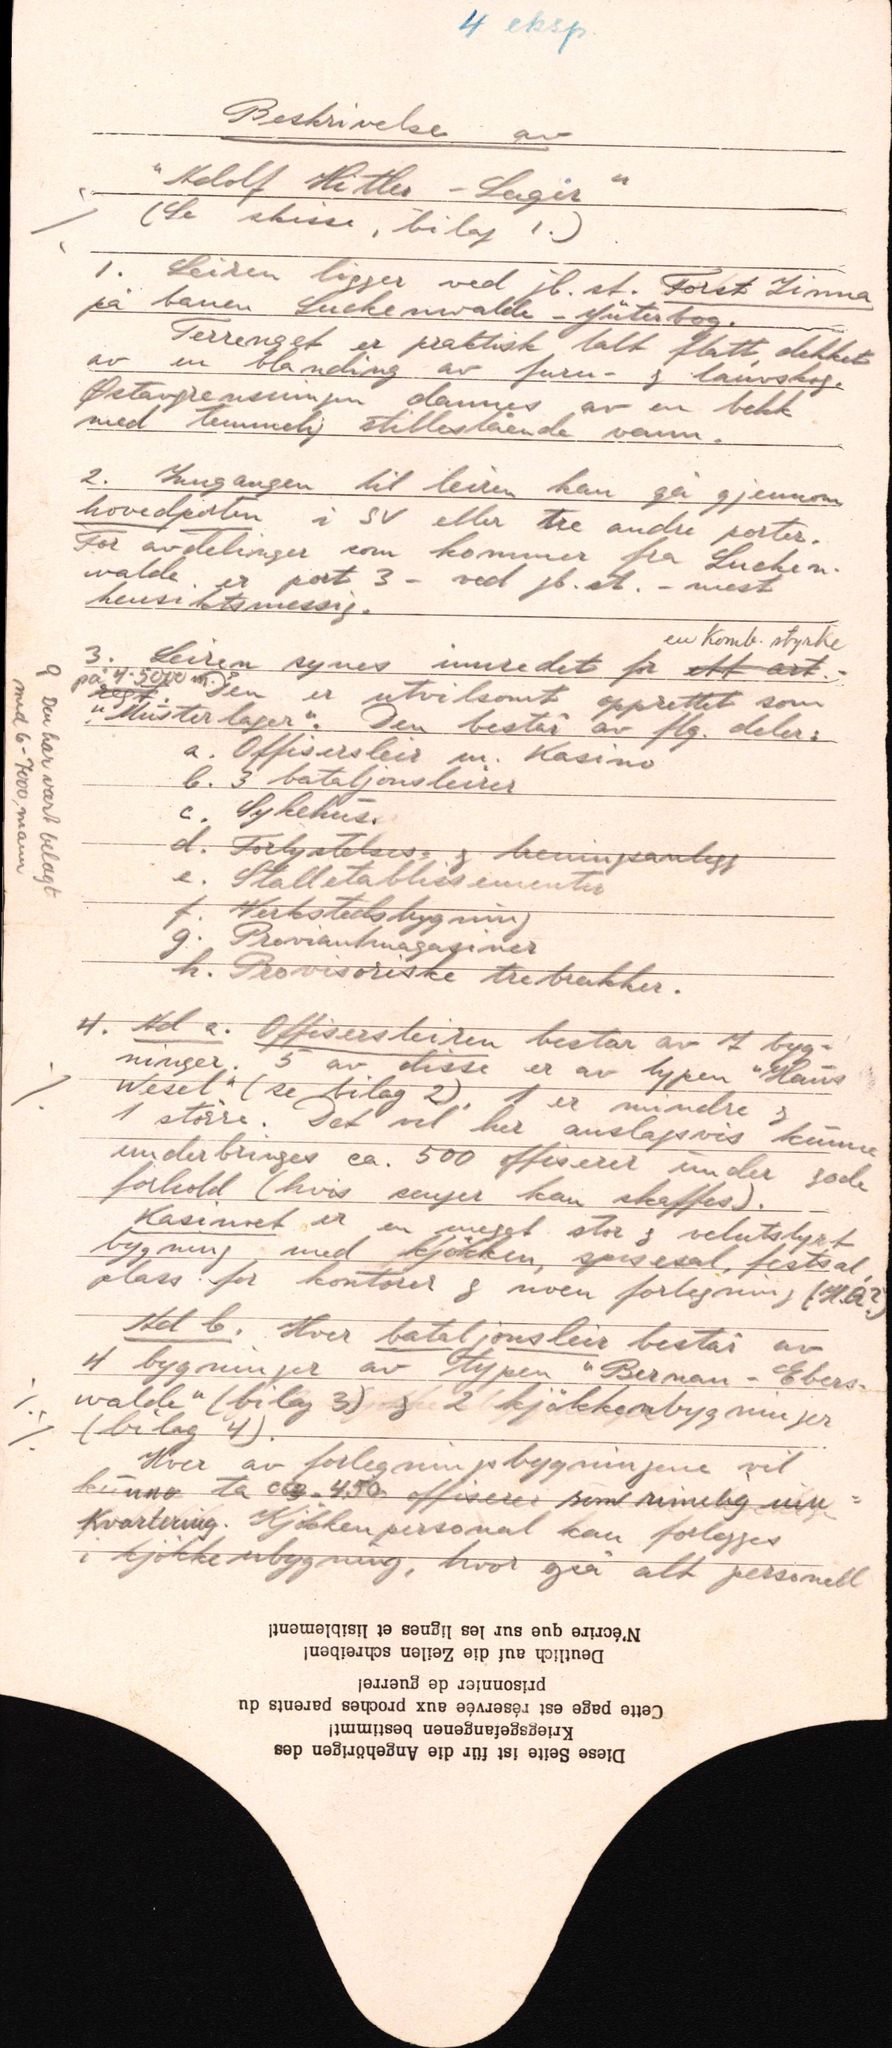 4 eksp.
Beskrivelse av
"Adolf Hitler - Lager"
(Se skisse, bilag 1.)
1. Leiren ligger ved jb. st. Forst Zinna
på banen Luckenwalde - Jüterbog.
Terrenget er praktisk talt flatt, dekket
av en blanding av furu- & lauvskog.
Østavgrensningen dannes av en bekk
med temmelig stillestående vann.
2. Inngangen til leiren kan gå gjennom
hovedporten i SV eller tre andre porter.
For avdelinger som kommer fra Lucken-
walde er port 3 - ved jb. st. - mest
hensiktsmessig.
en komb. styrke
3. Leiren synes innredet for ett art.-
på 4-5000 m.
regt. Den er utvilsomt opprettet som
"Musterlager". Den består av flg. deler:
a. Offisersleir m. Kasino
b. 3 bataljonsleirer
c. Sykehus.
d. Forlystelses- & treningsanlegg
e. Stalletablissementer
f. Verkstedsbygning
g. Proviantmagasiner
h. Provisoriske trebrakker.
Den har vært belagt
med 6-7000 mann
4. Ad a. Offisersleiren består av 7 byg-
ninger. 5 av disse er av typen "Haus
Wesel" (se bilag 2), 1 er mindre &
1 större. Det vil her anslagsvis kunne
underbringes ca. 500 offiserer under gode
forhold (hvis senger kan skaffes).
Kasinoet er en meget stor & velutstyrt
bygning med kjökken, spisesal, festsal,
plass for kontorer & noen forlegning (H.Q.?)
Ad b. Hver bataljonsleir består av
4 bygninger av typen "Bernau - Ebers-
walde" (bilag 3) & 2 kjökkenbygninger
(bilag 4).
Hver av forlegningsbygningene vil
kunne ta ca. 450 offiserer som rimelig inn-
kvartering. Kjökkenpersonal kan forlegges
i kjökkenbygning, hvor også alt personell
Diese Seite ist für die Angehörigen des
Kriegsgefangenen bestimmt!
Cette page est réservée aux proches parents du
prisonnier de guerre!
Deutlich auf die Zeilen schreiben!
N'écrire que sur les lignes et lisiblement!